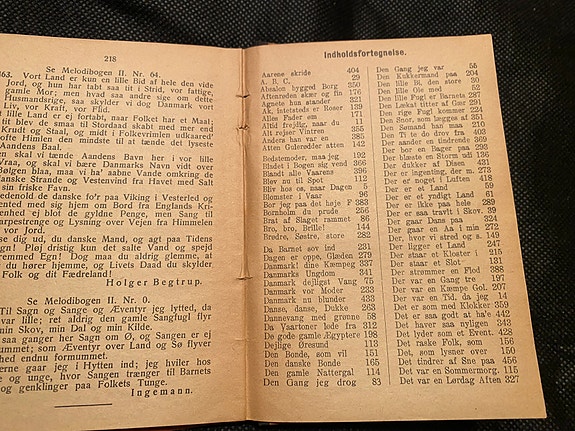 218
Se Melodibogen II. Nr. 64.
463. Vort Land er kun en lille Bid af hele den vide
Jord, og kun har tabt saa tit i Strid, vor fattige,
gamle Mor; men hvad saa andre sige om dette
Husmandsrige, saa skylder vi dog Danmark vort
Liv, vor Kraft, vor Flid.
lille Land er ej fortabt, naar Folket har et Maal;
tit blev de smaa til Stordaad skabt med mer end
Krudt og Staal, og midt i Folkevrimlen udkaared'
ofte Himlen den mindste til at tænde det lyseste
Aandens Baal.
skal vi tænde Aandens Bavn her i vor lille
og skal vi bære Danmarks Navn vidt over
Bølgen blaa, maa vi ha' aabne Vande omkring de
Danske Strande og Vestenvind fra Havet med Salt
sin friske Favn.
danske fo'r paa Viking i Vesterled og
med sig hjem om Bord fra Englands Kri-
ej blot de gyldne Penge, men Sang til
Harpestrenge og Lysning over Vejen fra Himmelen
vor Jord.
dig ud, du danske Mand, og agt paa Tidens
Egn! Pløj dristig kun det salte Vand og spejd
Egn! Dog maa du aldrig glemme, at
du hører hjemme, og Livets Daad du skylder
Folk og dit Fædreland!
Holger Begtrup.
Se Melodibogen II. Nr. 0.
Til Sagn og Sange og Æventyr jeg lytted, da
var lille; ret aldrig den gamle Sangfugl flyr
min Skov, min Dal og min Kilde.
saa ganger her Sagn om Ø, og Sangen er ej
som Æventyr over Land og Sø flyver
endnu formummet.
gaar jeg i Hytten ind; jeg hviler hos
og unge, hvor Sangen trænger til Barnets
og genklinger paa Folkets Tunge.
Ingemann.
Indholdsfortegnelse.
Aarene skride 404
A. B. C. 29
Absalon bygged Borg 350
Aftenrøden skær og fin 176
Agnete hun stander 321
Ak, latetsteds er Roser 139
Alle Fader som 171
Altid frejdig, naar du 11
Alt rejser Vintren 355
Anders han var en 385
Atten Gjderødder atter 142
Bedstemoder, maa jeg 192
Bladet i Bogen sig vend 396
Blandt alle Vaarens 396
Blev nu til Spot 112
Bliv hos os, naar Dagen 5
Blomster i Vaar 96
Bor jeg paa det høje F 383
Bornholm du prude 256
Brat af Slaget rammet 86
Bro, bro, Brille! 144
Brødre, Søstre, store 282
Da Barnet sov ind 231
Dagen er oppe, Glæden 279
Danmark! dine Kæmpep 337
Danmarks Ungdom 341
Danmark dejligst Vang 75
Danmark vor Moder 233
Danmark nu blunder 433
Danse, danse, Dukke 263
Dannevang med grønne 58
Da Vaartoner løde fra 312
De gode gamle Ægyptere 198
Dejlige Øresund 113
Den Bonde, som vil 151
Den danske Bonde 165
Den gamle Nattergal 114
Den Gang jeg drog 83
Den Gang jeg var 55
Den Kukkermand paa 204
Den lille Bi, den store 30
Den lille Ole med 52
Den lille Fugl i Barnets 287
Den Lækat titter af Gter 291
Den rige Fugl kommer 224
Den Snor, som lægges af 351
Den Sømand han maa 210
Den Ti te do frev fra 403
Der aander en usirende 369
Der bor en Bager paa 293
Der blæste en Storm ud 136
Der dukker af Disen 431
Der er ingenting, der m. 273
Der er noget i Luften 418
Der er et Land 59
Der er et yndigt Land 61
Der er ikke paa hele 289
Der er saa travlt i Skov. 39
Der gaar Dans paa 324
Der gaar en Aa i min 272
Der, hvor vi stred og s. 149
Der ligger et Land 247
Der staar et Kloster i 215
Der staar et Slot 131
Der strømmer en Flod 388
Der var en Gang fattig 197
Der var en Kæmpe Gol. 207
Der var en Tid, da jeg 14
Det er som med Klokker 359
Det er saa godt at ha'e 442
Det haver saa nyligen 343
Det lyder som et Event. 428
Det raske Folk, som 156
Det, som lysner over 150
Det tindrer af Sne paa 456
Det var en Sommermorg. 115
Det var en Lørdag Aften 327